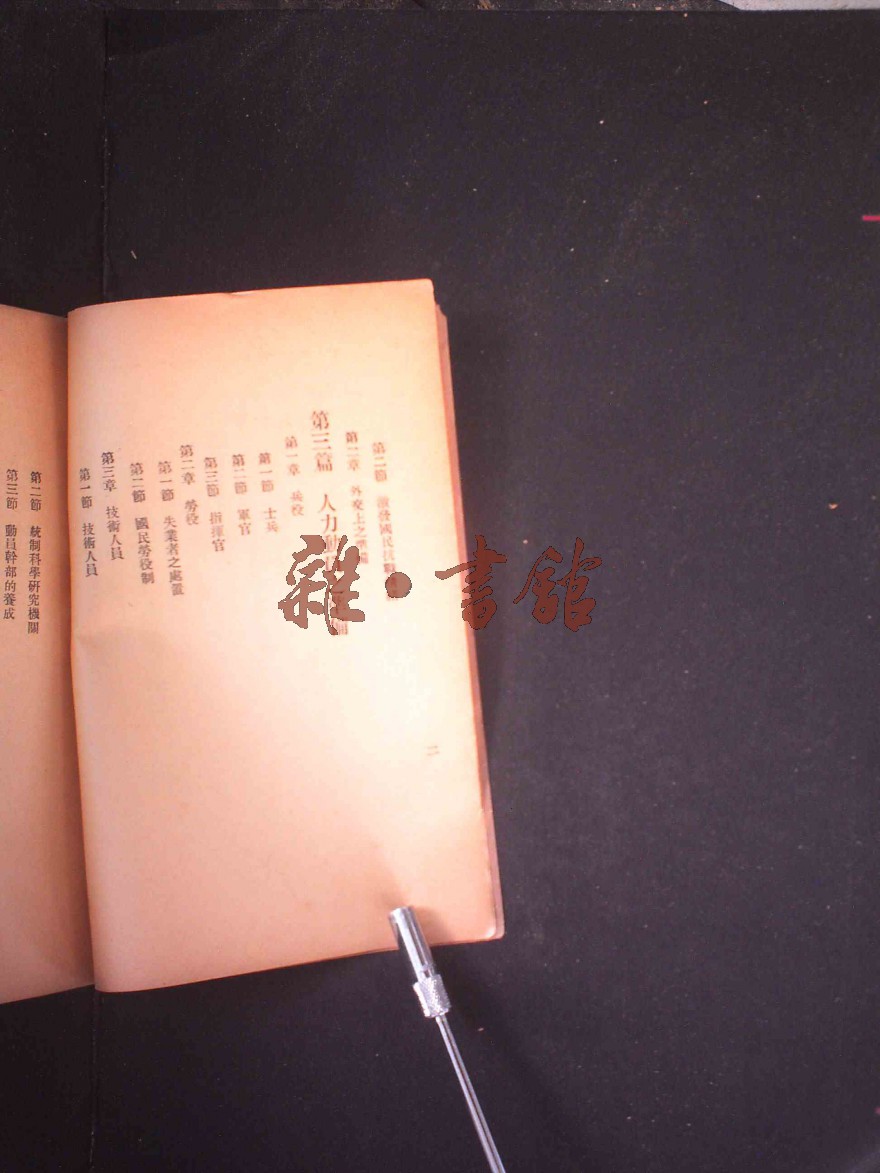 第二節 激發國民抗戰
第二章 外交上之準備
第三篇 人力動員
第一章 兵役
第一節 士兵
第二節 軍官
第三節 指揮官
第二章 勞役
第一節 失業者之處置
第二節 國民勞役制
第三章 技術人員
第一節 技術人員
二
第二節 統制科學研究機關
第三節 動員幹部的養成
雜·書館